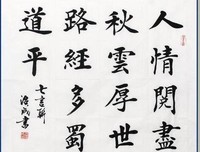 人情閱盡
秋雲厚世
路經多蜀
道平
七言聯
書